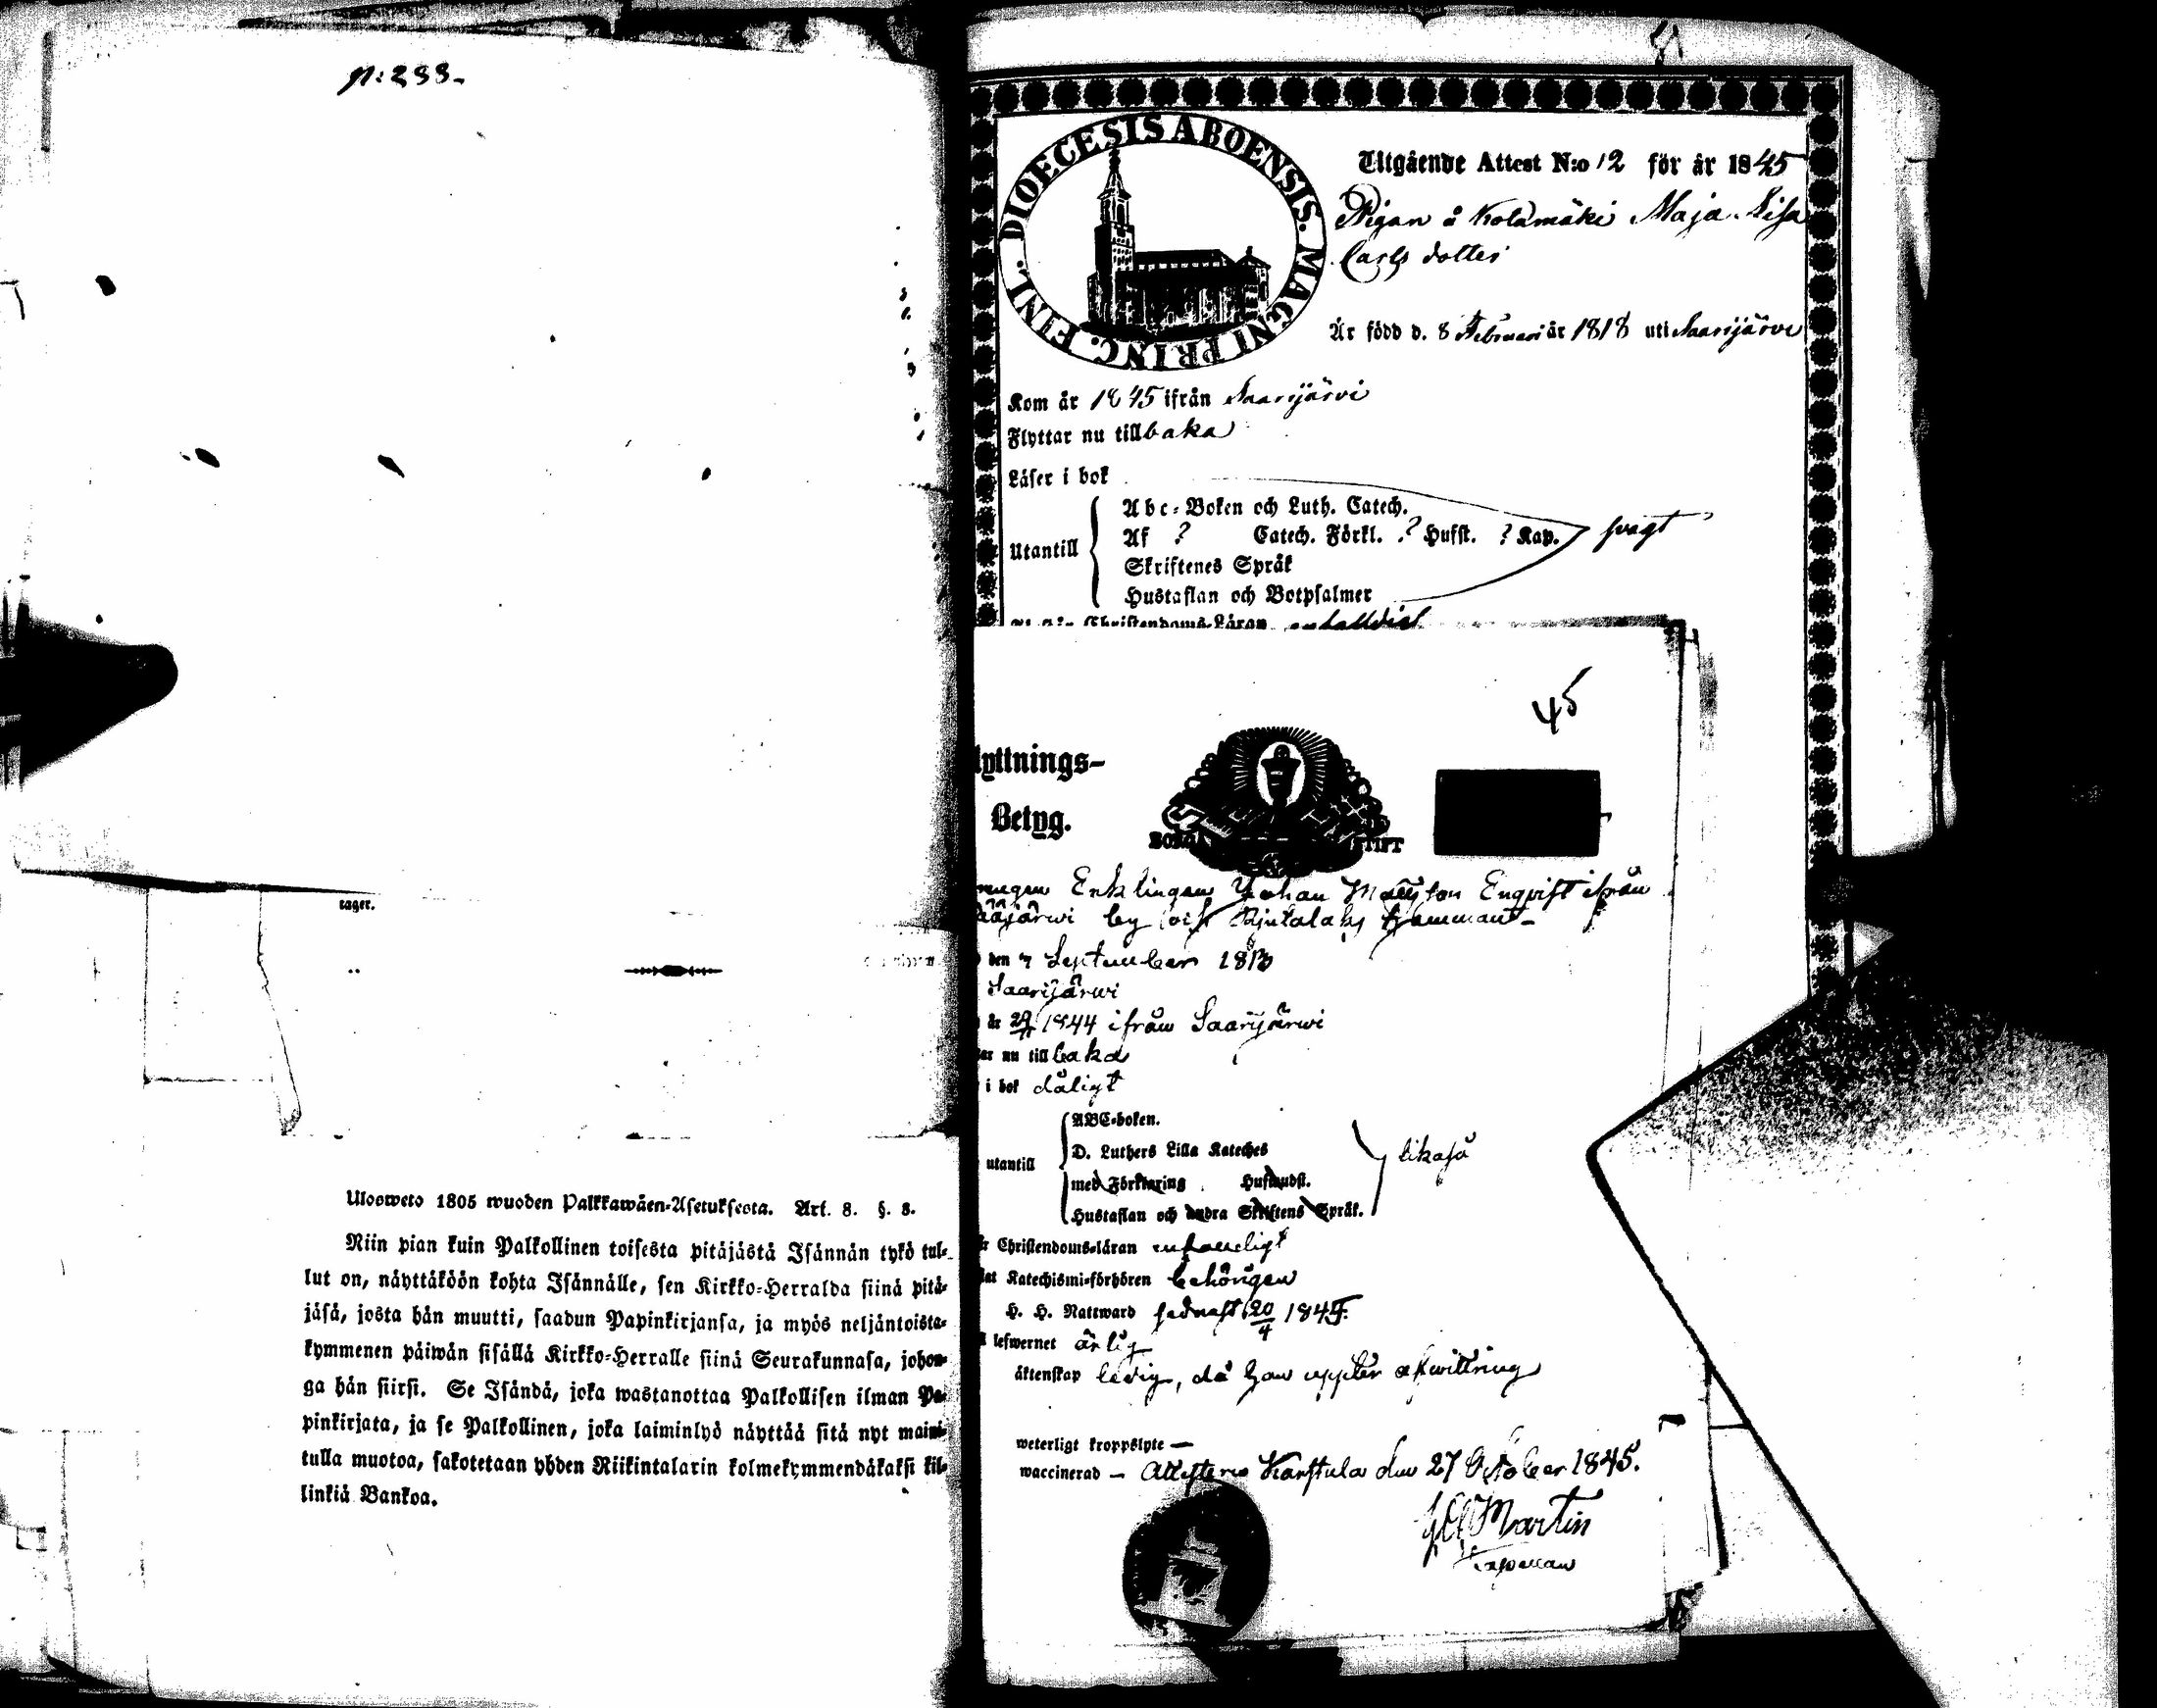 N:233.
tager.
Ulosweto 1805 wuoden Palkkawäen-Asetuksesta. Art. 8. §. 8.
Niin pian kuin Palkollinen toisesta pitäjästä Isännän tykö tul-
lut on, näyttäköön kohta Isännälle, sen Kirkko-Herralda siinä pitä-
jäsä, josta hän muutti, saadun Papinkirjansa, ja myös neljäntoista-
kymmenen päiwän sisällä Kirkko-Herralle siinä Seurakunnasa, johon-
ga hän siirsi. Se Isändä, joka wastanottaa Palkollisen ilman Pa-
pinkirjata, ja se Palkollinen, joka laiminlyö näyttää sitä nyt maini-
tulla muotoa, sakotetaan yhden Riikintalarin kolmekymmendäkaksi kil-
linkiä Bankoa.
DIOECESIS ABOENSIS. MAGNI PRINC. FINL.
Utgående Attest N:o 12 för år 1845
Pigan å Kolamäki Maja Lisa
Carls dotter
Är född d. 8 Februari år 1818 uti Saarijärvi
Kom år 1845 ifrån Saarijärvi
Flyttar nu tillbaka
Läser i bok
Utantill
Abc-Boken och Luth. Catech.
Af ? Catech. Förkl. ? Husst. ? Kap. svagt
Skriftenes Språk
Hustaflan och Botpsalmer
Christendoms-Läran
45
lyttnings-
Betyg.
BORGÅ STIFT
Enklingen Johan Matsson Enqvist ifrån
by och
den 7 September 1813
Saarijärwi
år 29 1844 ifrån Saarijärwi
ar nu till baka
i bok dåligt
utantill
ABC-boken.
D. Luthers Lilla Kateches
med Förklaring Huslandst.
Hustaflan och andra Skriftens Språk.
likaså
Christendoms-läran enfaldigt
at Katechismi-förhören behörigen
H. H. Nattward sednast 20/4 1845.
lefwernet ärlig
äktenskap ledig, då han uppter afwittring
weterligt kroppslyte —
waccinerad — Attesteras Karstula den 27 October 1845.
Martin
Capellan